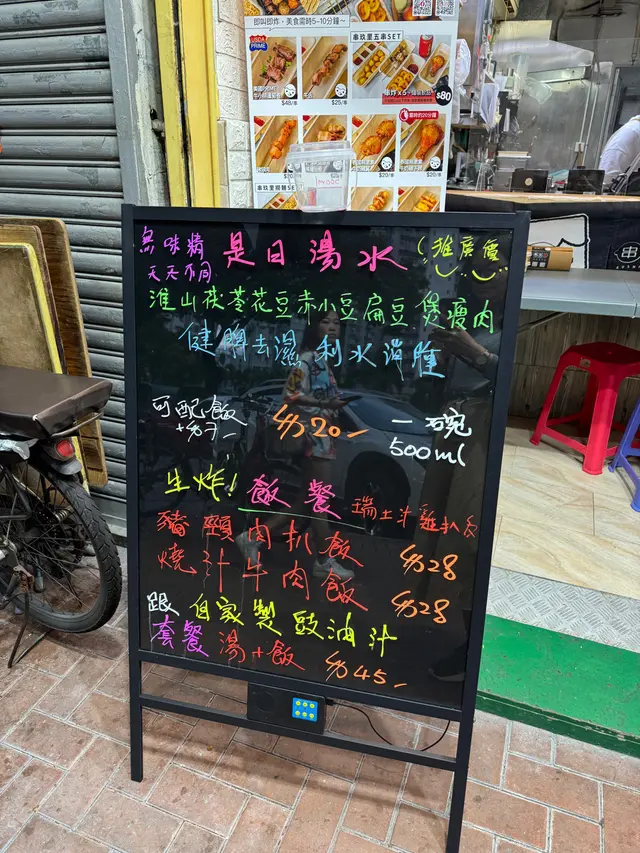 即叫即炸，美食需時5-10分鐘~
USDA PRIME
$48/串
$25/串
串玖里五串SET
$80
$20/串
$20/串
無味精
天天不同
是日湯水
(推廣價)
淮山茯苓花豆赤小豆扁豆煲瘦肉
健脾去濕 利水消腫
可配飯
$20-
一碗
500ml
生炸!
飯餐
瑞士汁雞扒飯
豬頸肉扒飯 $28
燒汁牛肉飯 $28
跟自家製豉油汁
套餐 湯+飯 $45-
串